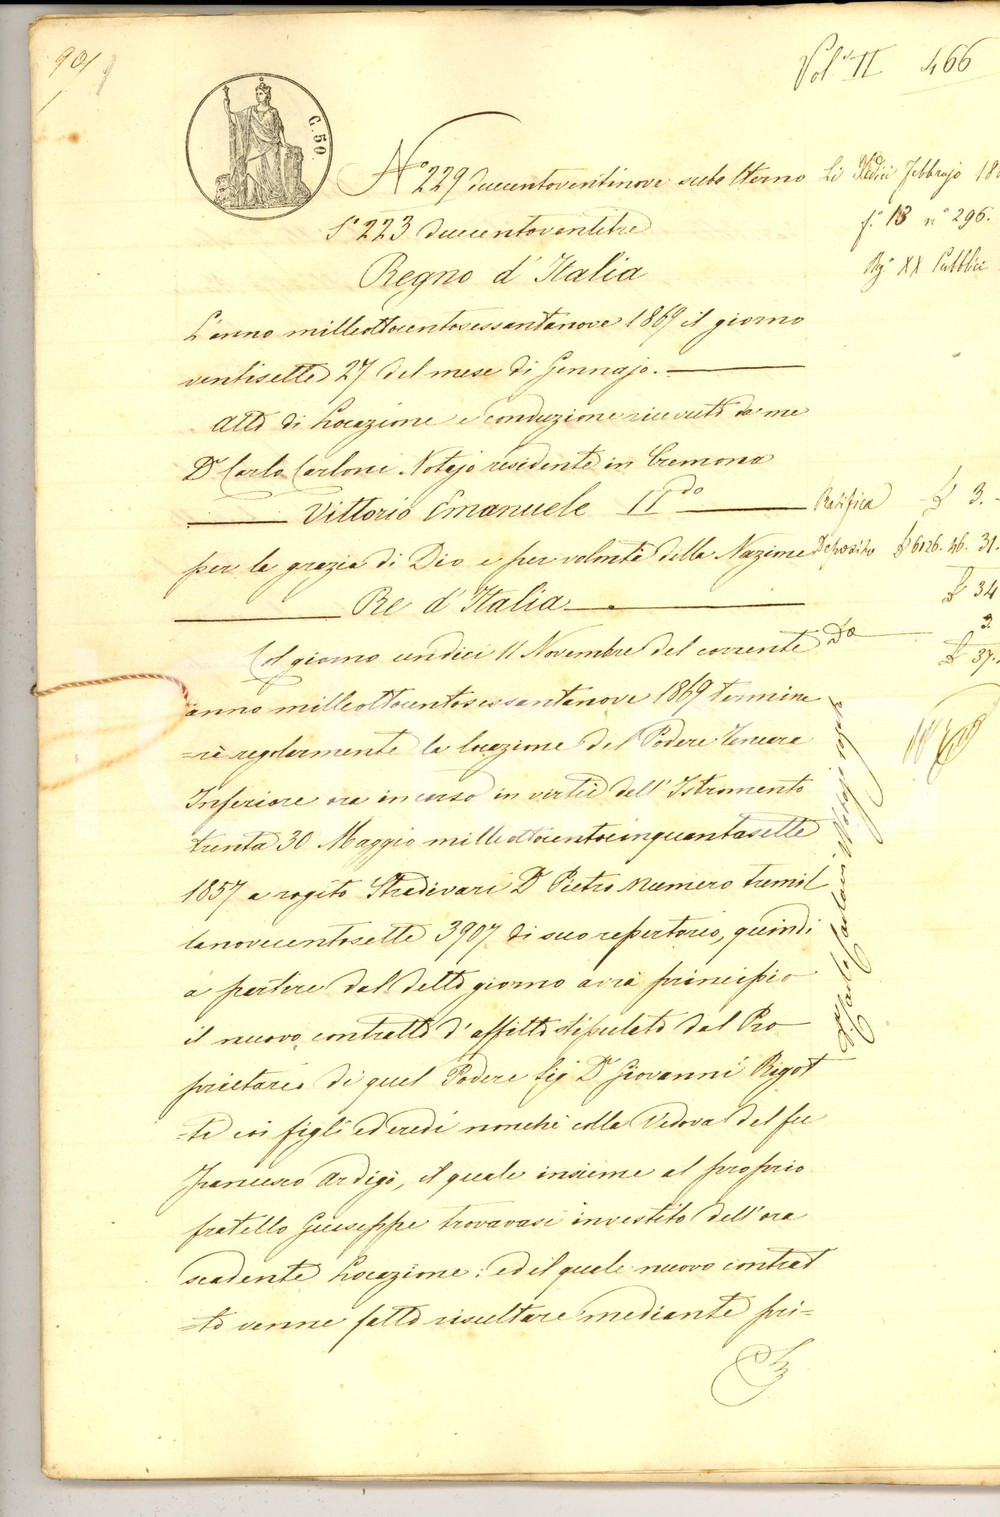 901
Vol. II 466
C. 50.
N.° 229 duecentoventinove subalterno
S.° 223 duecentoventitre
Li Sedici Febbrajo
f.° 13 n.° 296.
Reg.° XX Pubblici
Regno d'Italia
L'anno milleottocentosessantanove 1869 il giorno
ventisette 27 del mese di Gennajo.
Atto di Locazione e conduzione ricevuto da me
Dr. Carlo Carloni Notajo residente in Cremona
Vittorio Emanuele II.do
Ratifica £ 3.
per la grazia di Dio e per volontà della Nazione
Deposito £ 6126. 46. 31.
Re d'Italia
£ 34
3.
Col giorno undici 11 Novembre del corrente
£ 37.
anno milleottocentosessantanove 1869 termine
=rà regolarmente la locazione del Podere Tencara
Inferiore ora in corso in virtù dell'Istromento
trenta 30 Maggio milleottocentocinquantasette
1857 a rogito Stradivari Dr. Pietro numero tremil
lanovecentosette 3907 di suo repertorio, quindi
a partire dal detto giorno avrà principio
il nuovo contratto d'affitto stipulato dal Pro
prietario di quel Podere Sig. Dr. Giovanni Rigot
=ti coi figli ed eredi nonchè colla Vedova del fu
Francesco Ardigò, il quale insieme al proprio
fratello Giuseppe trovavasi investito dell'ora
scadente Locazione: ed il quale nuovo contrat
=to venne fatto risultare mediante pri=
Dr. Carlo Carloni Notajo